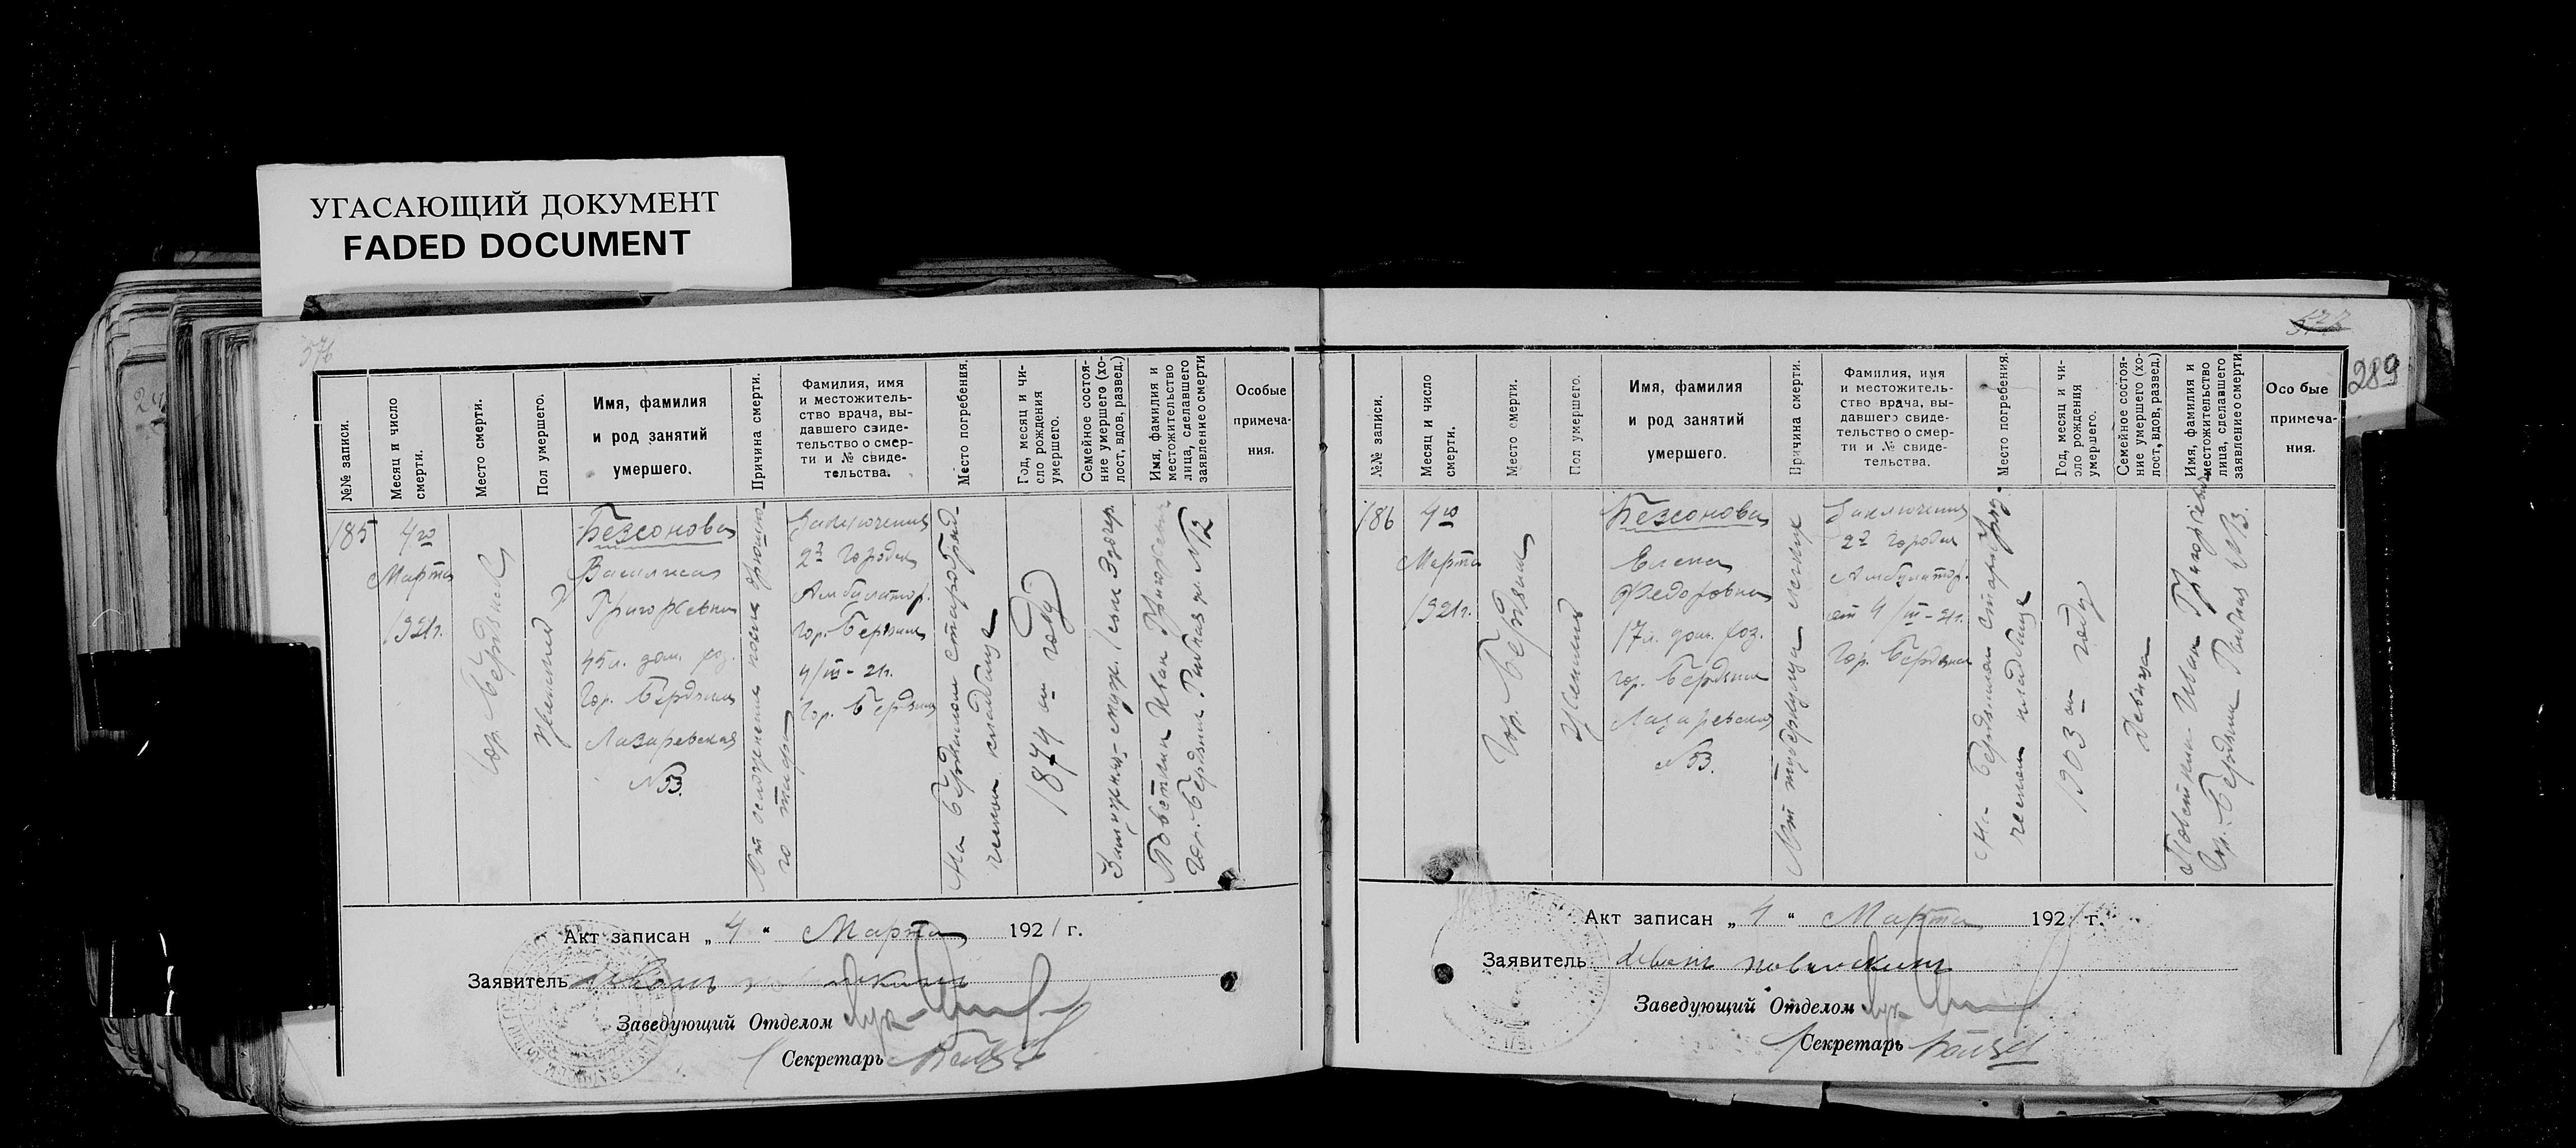 УГАСАЮЩИЙ ДОКУМЕНТ
FADED DOCUMENT
576
№№ записи.
Месяц и число
смерти.
Место смерти.
Пол умершего.
Имя, фамилия
и род занятий
умершего.
Причина смерти.
Фамилия, имя
и местожитель-
ство врача, вы-
давшего свиде-
тельство о смер-
ти и № свиде-
тельства.
Место погребения.
Год, месяц и чи-
сло рождения
умершего.
Семейное состоя-
ние умершего (хо-
лост, вдов, развед.)
Имя, фамилия и
местожительство
лица, сделавшего
заявление о смерти
Особые
примеча-
ния.
185
4го
Марта
1921г.
Гор. Бердянск
Женский
Безсонова
Василиса
Григорьевна
45л. дом. хоз.
Гор. Бердянск
Лазаревская
№53.
От осложнения после брюшно
го тифа
Заключения
2й Городск
Амбулатор.
Гор. Бердянск
4/III-21г.
Гор. Бердянск
На Бердянском старо
кладбище
1874 м году
Замужняя
Иван Григорьевич
Гор. Бердянск
Акт записан „ 4 “ Марта 1921 г.
Заявитель Иванъ
Заведующий Отделом
Секретарь
577
289
№№ записи.
Месяц и число
смерти.
Место смерти.
Пол умершего.
Имя, фамилия
и род занятий
умершего.
Причина смерти.
Фамилия, имя
и местожитель-
ство врача, вы-
давшего свиде-
тельство о смер-
ти и № свиде-
тельства.
Место погребения.
Год, месяц и чи-
сло рождения
умершего.
Семейное состоя-
ние умершего (хо-
лост, вдов, развед.)
Имя, фамилия и
местожительство
лица, сделавшего
заявление о смерти.
Особые
примеча-
ния.
186
4го
Марта
1921г.
Гор. Бердянск
Женский
Безсонова
Елена
Федоровна
17л. дом. хоз.
Гор. Бердянск
Лазаревская
№53.
От туберкулеза легких
Заключения
2й Городск
Амбулатор.
от 4/III-21г.
Гор. Бердянск
На Бердянском старо
кладбище
1903 м году
Девица
Иван Григорьевич
Гор. Бердянск
Акт записан „ 4 “ Марта 1921 г.
Заявитель Иванъ
Заведующий Отделом
Секретарь